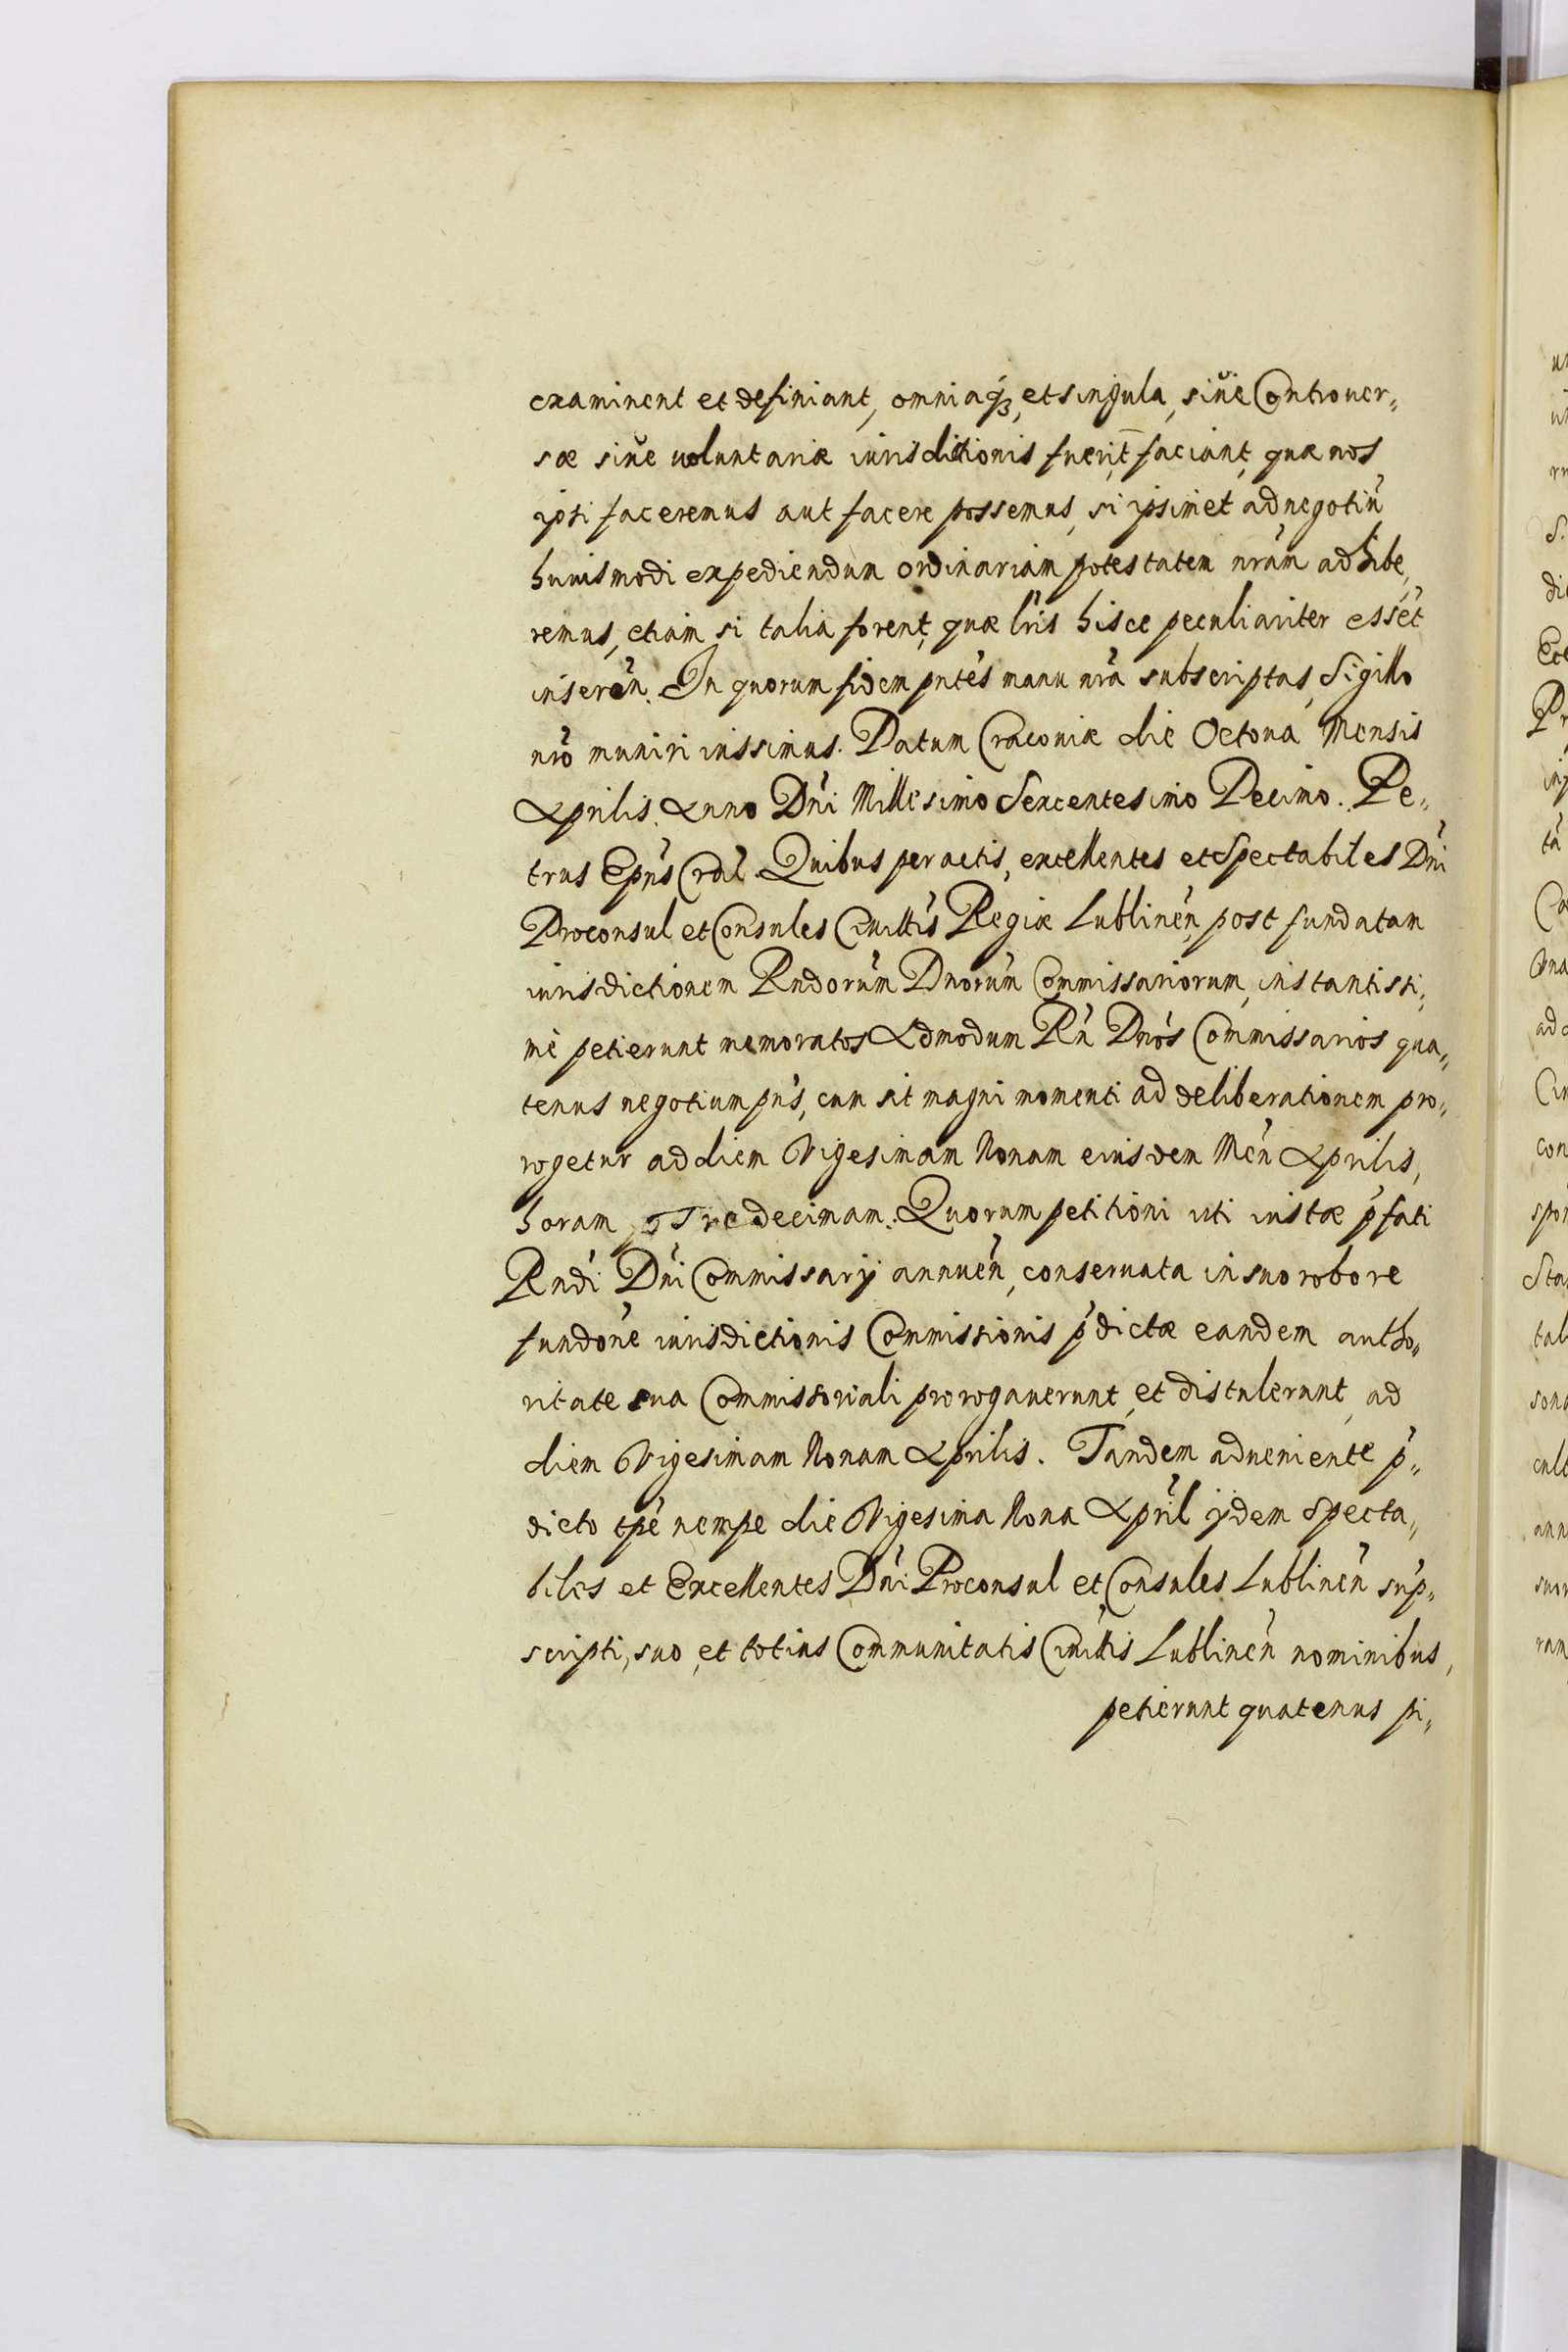 examinent et definiant, omniaq₃, et singula, siue Controuer„
sæ siue uoluntariæ iurisditionis fuerit faciant, quæ nos
ipsi faceremus aut facere possemus, si ipsimet ad negotiũ
huiusmodi expediendum ordinariam potestatem nrãm adhibe„
remus, etiam si talia forent, quæ lrĩs hisce peculiariter essẽt
inserẽn. In quorum fidem pntẽs manu nrã subscriptas, Sigillo
nrõ muniri iussimus. Datum Cracouiæ die Octoua Mensis
Aprilis. Anno Dñi Millesimo Sexcentesimo Decimo. Pe„
trus Epũs Cral̃. Quibus peractis, excellentes et Spectabiles Dñi
Proconsul et Consules Ciuittĩs Regiæ Lublineñ, post fundatam
iurisdictionem Rndorũm Dnorũm Commissariorum, instantissi„
mè petierunt memoratos Admodum Rñ Dnõs Commissarios qua„
tenus negotium pñs, cum sit magni momenti ad deliberationem pro„
rogetur ad diem Vigesimam Nonam eiusdem Meñ Aprilis,
horam Tredecimam. Quorum petitioni uti iustæ p̃fati
Rndĩ Dñi Commissarij annueñ, conseruata in suo robore
fundonẽ iurisdictionis Commissionis p̃dictæ eandem autho„
ritate sua Commissoriali prorogauerunt, et distulerunt, ad
diem Vigesimam Nonam Aprilis. Tandem adueniente p̃„
dicto tpẽ nempe die Vigesima Nona Apríl ijdem Specta„
biles et Excellentes Dñi Proconsul et Consules Lublineñ sup̃„
scripti, suo, et totius Communitatis Ciuittĩs Lublineñ nominibus,
petierunt quatenus pi„